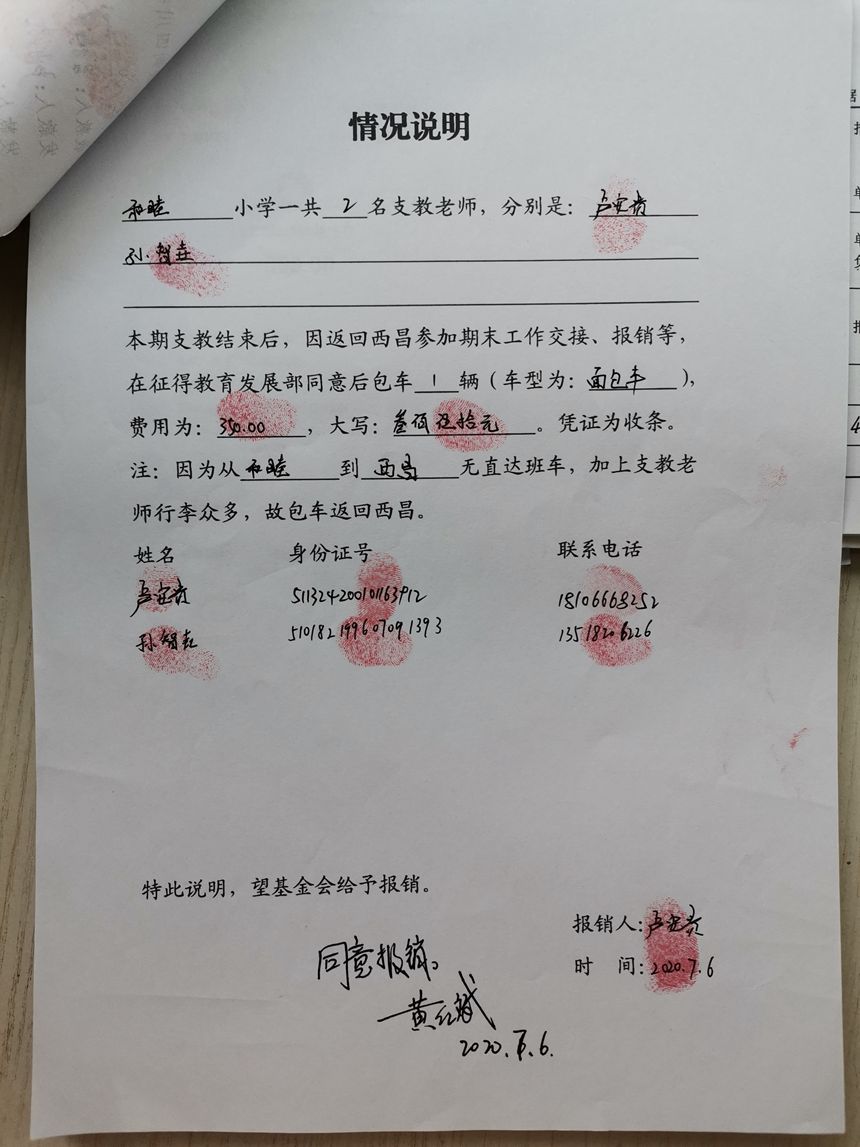 情况说明
和睦小学一共2名支教老师，分别是：卢定贵
孙智垚
本期支教结束后，因返回西昌参加期末工作交接、报销等，
在征得教育发展部同意后包车1辆（车型为：面包车），
费用为：350.00，大写：叁佰伍拾元。凭证为收条。
注：因为从和睦到西昌无直达班车，加上支教老
师行李众多，故包车返回西昌。
姓名 身份证号 联系电话
511324200101163912 18106668252
孙智垚 510182199607091393
特此说明，望基金会给予报销。
报销人：
同意报销。
时 间：2020.7.6
2020.7.6.